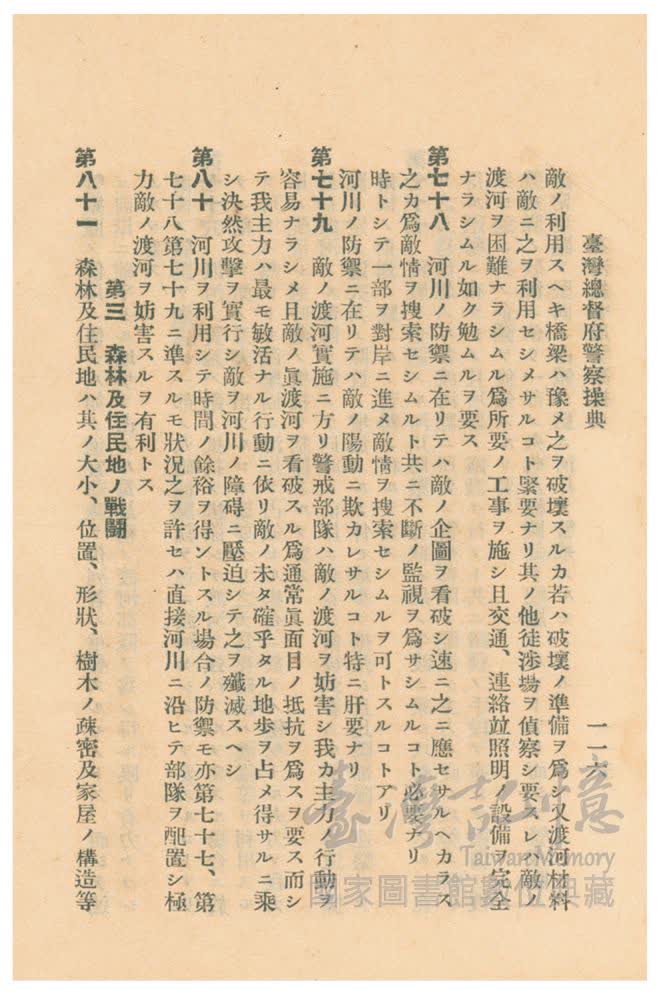 臺灣總督府警察操典
一一六
敵ノ利用スヘキ橋梁ハ豫メ之ヲ破壞スルカ若ハ破壞ノ準備ヲ爲シ又渡河材料
ハ敵ニ之ヲ利用セシメサルコト緊要ナリ其ノ他徒涉場ヲ偵察シ要スレハ敵ノ
渡河ヲ困難ナラシムル爲所要ノ工事ヲ施シ且交通、連絡竝照明ノ設備ヲ完全
ナラシムル如ク勉ムルヲ要ス
第七十八 河川ノ防禦ニ在リテハ敵ノ企圖ヲ看破シ速ニ之ニ應セサルヘカラス
之カ爲敵情ヲ搜索セシムルト共ニ不斷ノ監視ヲ爲サシムルコト必要ナリ
時トシテ一部ヲ對岸ニ進メ敵情ヲ搜索セシムルヲ可トスルコトアリ
河川ノ防禦ニ在リテハ敵ノ陽動ニ欺カレサルコト特ニ肝要ナリ
第七十九 敵ノ渡河實施ニ方リ警戒部隊ハ敵ノ渡河ヲ妨害シ我カ主力ノ行動ヲ
容易ナラシメ且敵ノ眞渡河ヲ看破スル爲通常眞面目ノ抵抗ヲ爲スヲ要ス而シ
テ我主力ハ最モ敏活ナル行動ニ依リ敵ノ未タ確乎タル地步ヲ占メ得サルニ乘
シ決然攻擊ヲ實行シ敵ヲ河川ノ障碍ニ壓迫シテ之ヲ殲滅スヘシ
第八十 河川ヲ利用シテ時間ノ餘裕ヲ得ントスル場合ノ防禦モ亦第七十七、第
七十八第七十九ニ準スルモ狀況之ヲ許セハ直接河川ニ沿ヒテ部隊ヲ配置シ極
力敵ノ渡河ヲ妨害スルヲ有利トス
第三 森林及住民地ノ戰鬪
第八十一 森林及住民地ハ其ノ大小、位置、形狀、樹木ノ疎密及家屋ノ構造等
臺灣記憶
Taiwan Memory
國家圖書館數位典藏